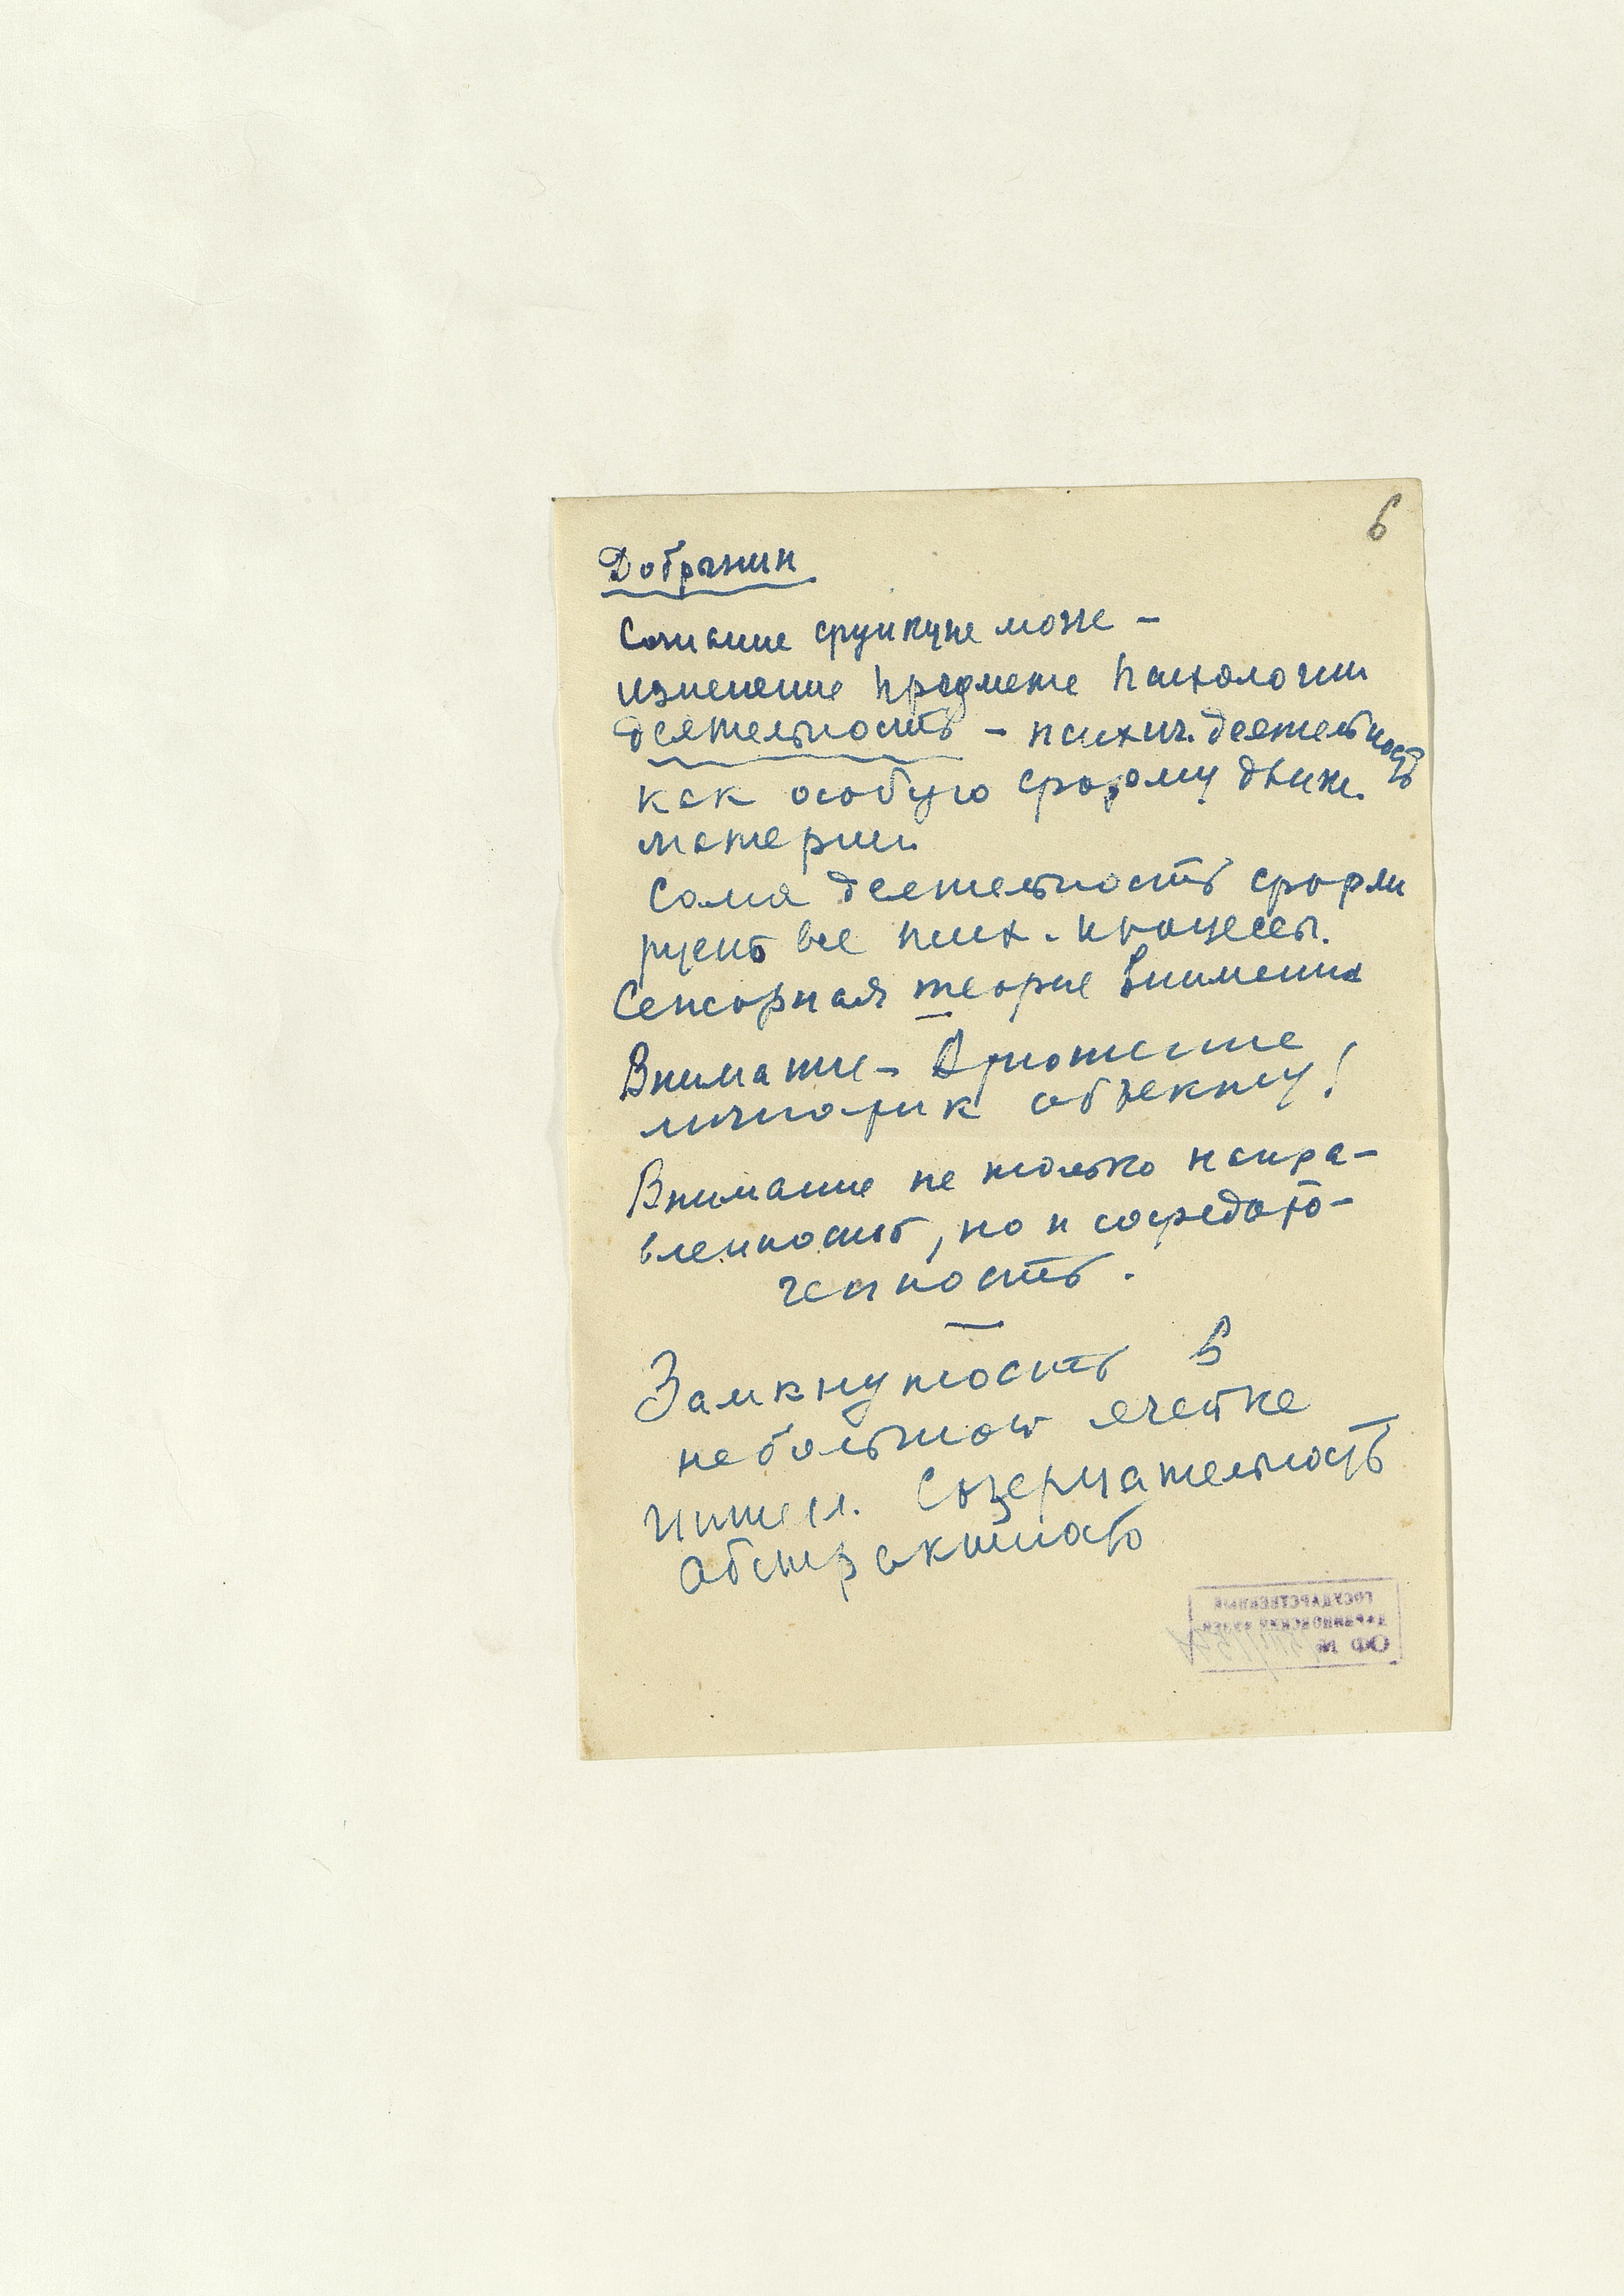 6
Добрынин
Сознание функция мозга –
изменение предмета психологии
деятельность – психич. деятельность
как особую форму движ.
материи
Сама деятельность форми
рует все псих. процессы.
Сенсорная теория внимания
Внимание – отношение
личности к объекту!
Внимание не только напра-
вленность, но и сосредото-
ченность.
Замкнутость в
небольшой ячейке
Интел. Созерцательность
Абстрактность
ГОСУДАРСТВЕННЫЙ
ОФ №